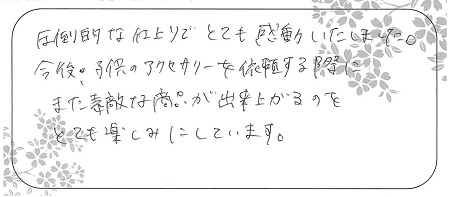 圧倒的な仕上りでとても感動いたしました。
今後も子供のアクセサリーを依頼する際に
また素敵な商品が出来上がるのを
とても楽しみにしています。